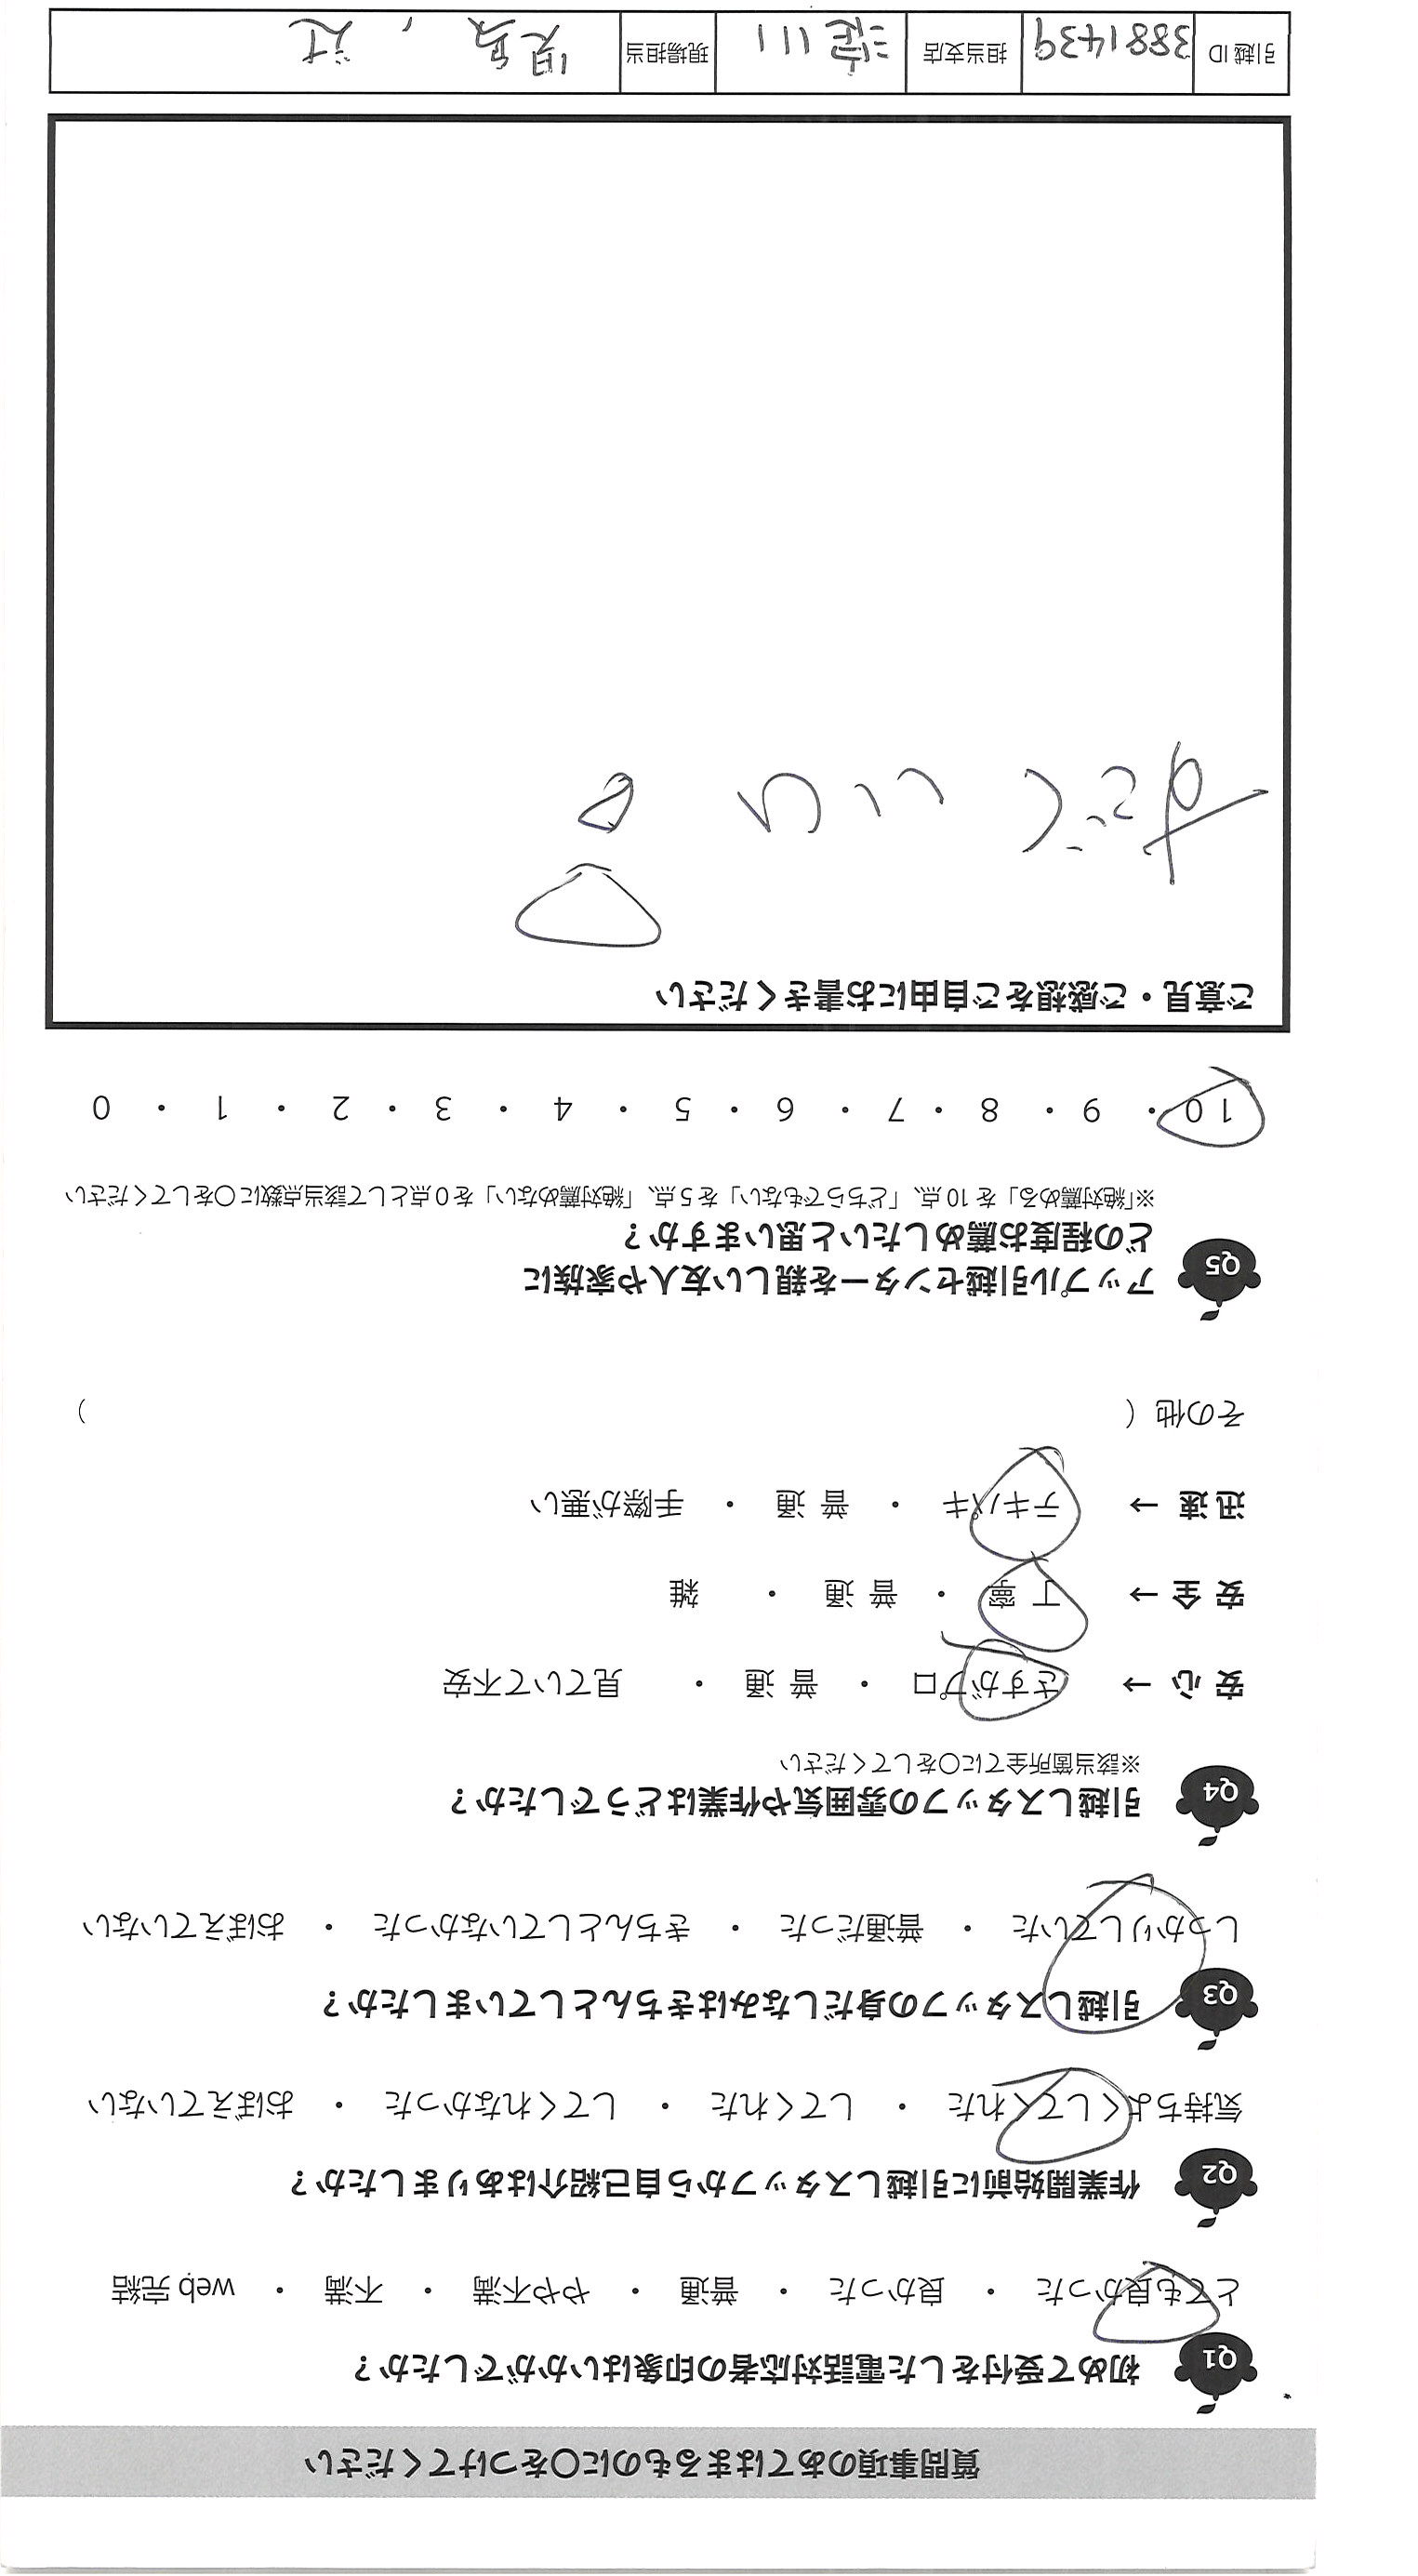 質問事項のあてはまるものに〇をつけてください
Q1 初めて受付をした電話対応者の印象はいかがでしたか？
とても良かった ・ 良かった ・ 普通 ・ やや不満 ・ 不満 ・ web 完結
Q2 作業開始前に引越しスタッフから自己紹介はありましたか？
気持ちよくしてくれた ・ してくれた ・ してくれなかった ・ おぼえていない
Q3 引越しスタッフの身だしなみはきちんとしていましたか？
しっかりしていた ・ 普通だった ・ きちんとしていなかった ・ おぼえていない
Q4 引越しスタッフの雰囲気や作業はどうでしたか？
※該当箇所全てに〇をしてください
安 心 → さすがプロ ・ 普 通 ・ 見ていて不安
安 全 → 丁 寧 ・ 普 通 ・ 雑
迅 速 → テキパキ ・ 普 通 ・ 手際が悪い
その他（ ）
Q5 アップル引越センターを親しい友人や家族に
どの程度お薦めしたいと思いますか？
※「絶対薦める」を 10 点、「どちらでもない」を 5 点、「絶対薦めない」を 0 点として該当点数に〇をしてください
10 ・ 9 ・ 8 ・ 7 ・ 6 ・ 5 ・ 4 ・ 3 ・ 2 ・ 1 ・ 0
ご意見・ご感想をご自由にお書きください
すごくいい
引越 ID 3881439 担当支店 淀川 現場担当 児島, 辻